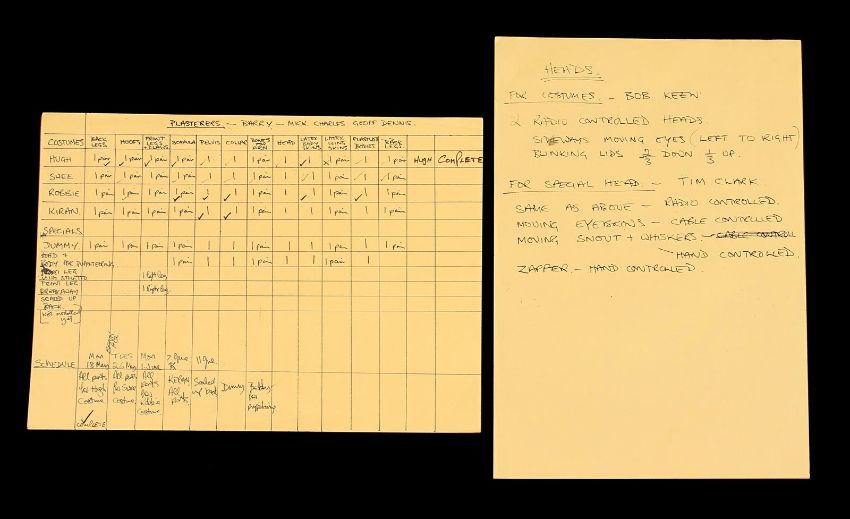 PLASTERERS - BARRY - MICK CHARLES GEOFF DENNIS.
COSTUMES BACK LEGS HOOFS FRONT LEGS SCAPULA PELVIS COLLAR HEAD LATEX BODY SKINS LATEX SKINS BACK LEGS
HUGH 1 pair 1 pair 1 pair 1 pair 1 1 1 pair 1 1 1 pair 1 1 pair HUGH COMPLETE
SHEE 1 pair 1 pair 1 pair 1 pair 1 1 1 pair 1 1 1 pair 1 1 pair
ROBBIE 1 pair 1 pair 1 pair 1 pair 1 1 1 pair 1 1 1 pair 1 1 pair
KIRAN 1 pair 1 pair 1 pair 1 pair 1 1 1 pair 1 1 1 pair 1 1 pair
SPECIALS
DUMMY 1 pair 1 pair 1 pair 1 pair 1 1 1 pair 1 1 1 pair 1 1 pair
BODY FOR PUPPETEERING 1 pair 1 1 1 pair 1 1 1 pair 1
FRONT LEG 1 right leg
FRONT LEG
BREAKAWAY 1 right leg
SCALED UP
BACK
SCHEDULE Mon 18 May TUES 26 May Mon 1 June 11 June
All parts for Hugh Costume All parts for Shee Costume All parts for Robbie Costume KIRAN All parts Scaled up back Dummy Body for puppeteering
COMPLETE
HEADS.
FOR COSTUMES - BOB KEEN
2 RADIO CONTROLLED HEADS
SIDEWAYS MOVING EYES (LEFT TO RIGHT)
BLINKING LIDS 2/3 DOWN 1/3 UP.
FOR SPECIAL HEAD - TIM CLARK.
SAME AS ABOVE - RADIO CONTROLLED.
MOVING EYESKINS - CABLE CONTROLLED
MOVING SNOUT + WHISKERS - CABLE CONTROLL
HAND CONTROLLED.
ZAPPER - HAND CONTROLLED.